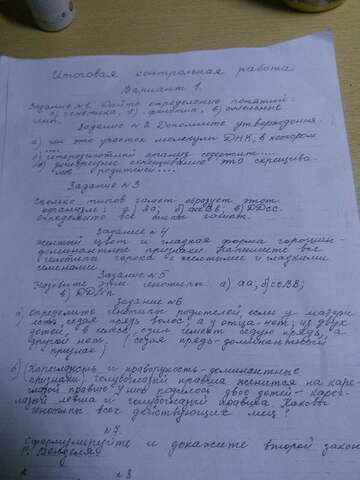 Итоговая контрольная работа
Вариант 1.
Задание №1. Дайте определение понятий:
а) генетика, б) фенотип, в) аллельные
Задание №2 Дополните утверждения
а) ген это участок молекулы ДНК, в котором
....
б) гетерозиготный организм содержит....
в) дигибридное скрещивание это скрещива-
ние родителей....
Задание №3
Сколько типов гамет образует этот
организм: а) Аа; б) ВВ; в) DDсс.
определите все типы гамет.
Задание №4
Желтый цвет и гладкая форма горошин-
доминантные признаки. Напишите все
генотипы гороха с желтыми и гладкими
семенами.
Задание №5
Назовите эти генотипы а) аа; б) ссВВ;
в) DD
Задание №6
а) Определите генотипы родителей, если у матери
есть седая прядь волос; а у отца-нет; из двух
детей, в семье, один имеет седую прядь, а
другой нет. (седая прядь-доминантный
признак)
б) (Кареглазость и праворукость-доминантные
признаки) голубоглазый правша женится на каре-
глазой правше. У них родилось двое детей- карег-
лазый левша и голубоглазый правша. Каковы
генотипы всех действующих лиц?
№7.
Сформулируйте и докажите второй закон
Г. Менделя